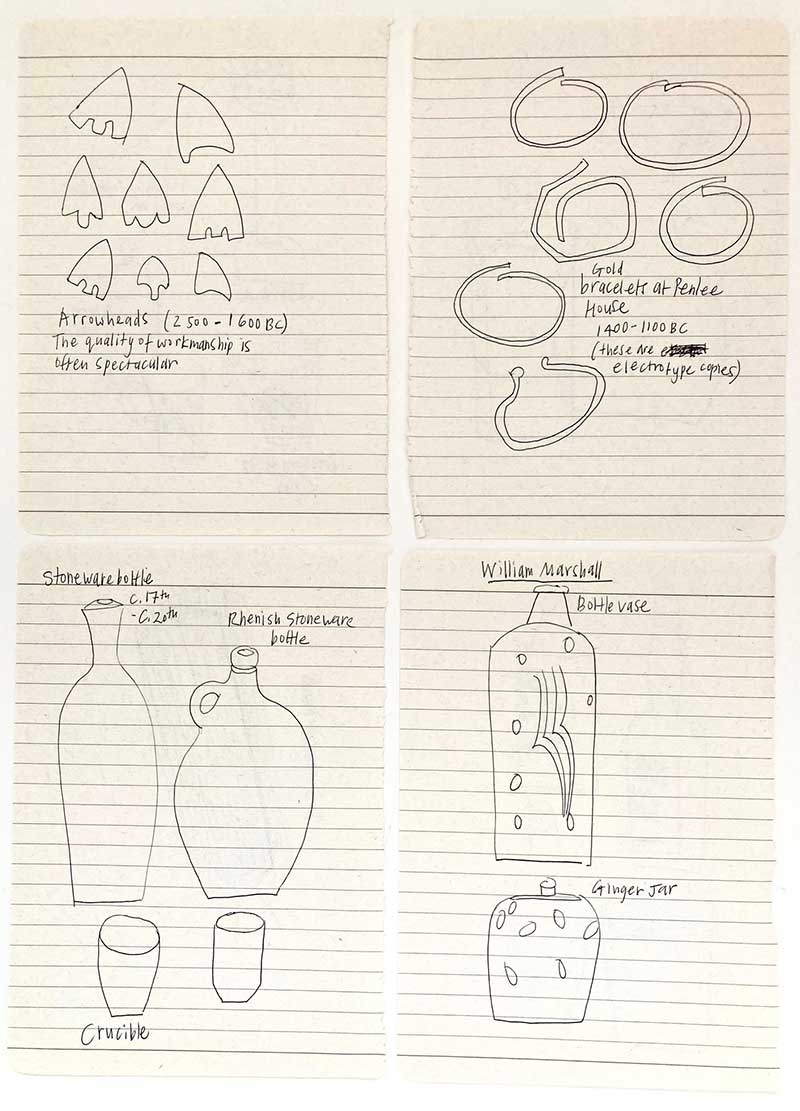 Arrowheads (2500-1600BC)
The quality of workmanship is
often spectacular
Gold
bracelets at Penlee
House
1400-1100 BC
(these are
electrotype copies)
Stoneware bottle
c.17th
-c.20th
Rhenish Stoneware
bottle
Crucible
William Marshall
Bottle vase
Ginger Jar